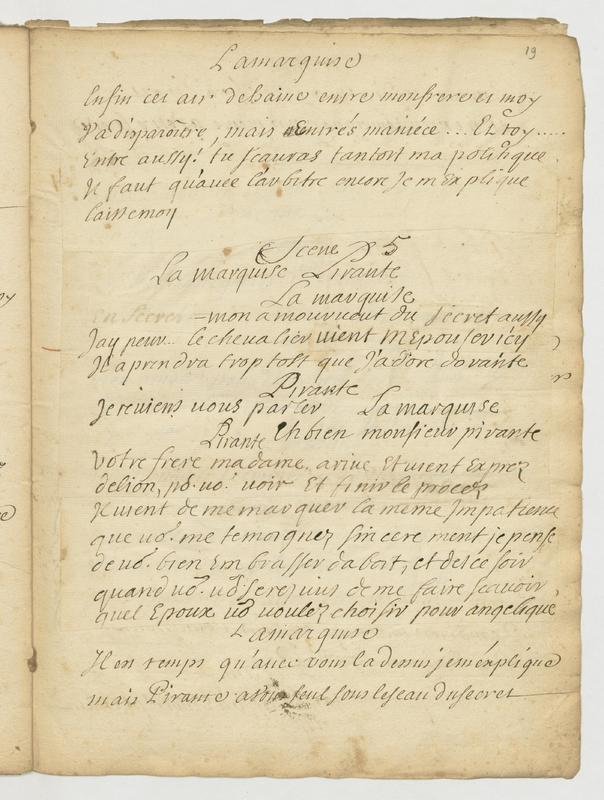 19
Lamarquise
Enfin cet air dehaine entre monfrere et moy
Va disparoitre, mais Entrés maniéce ... Et toy .....
Entre aussy! tu scauras tantost ma politique
Il faut qu'avec l'arbitre encore Je m'Explique
laissemoy
Scene 5
La marquise Pirante
La marquise
= mon amour veut du secret aussy
Jay peur.. le chevalier vient m'Epouser icy
Il aprendra trop tost que J'adore dorante
Pirante
Je reviens vous parler La marquise
Eh bien monsieur pirante
Pirante
Votre frere madame arive Et vient Exprez
delion, pr. vo. voir Et finir le procez
Il vient de me marquer la meme Impatience
que vo. me temoignez sincerement je pense
de vo. bien Embrasser dabort, et des ce soir
quand vo. vo. serez vus de me faire scavoir,
quel Epoux vo. voulez choisir pour angelique
Lamarquise
Il en temps qu'avec vous la dessus jem'explique
mais Pirante a vous seul sous le seau du secret